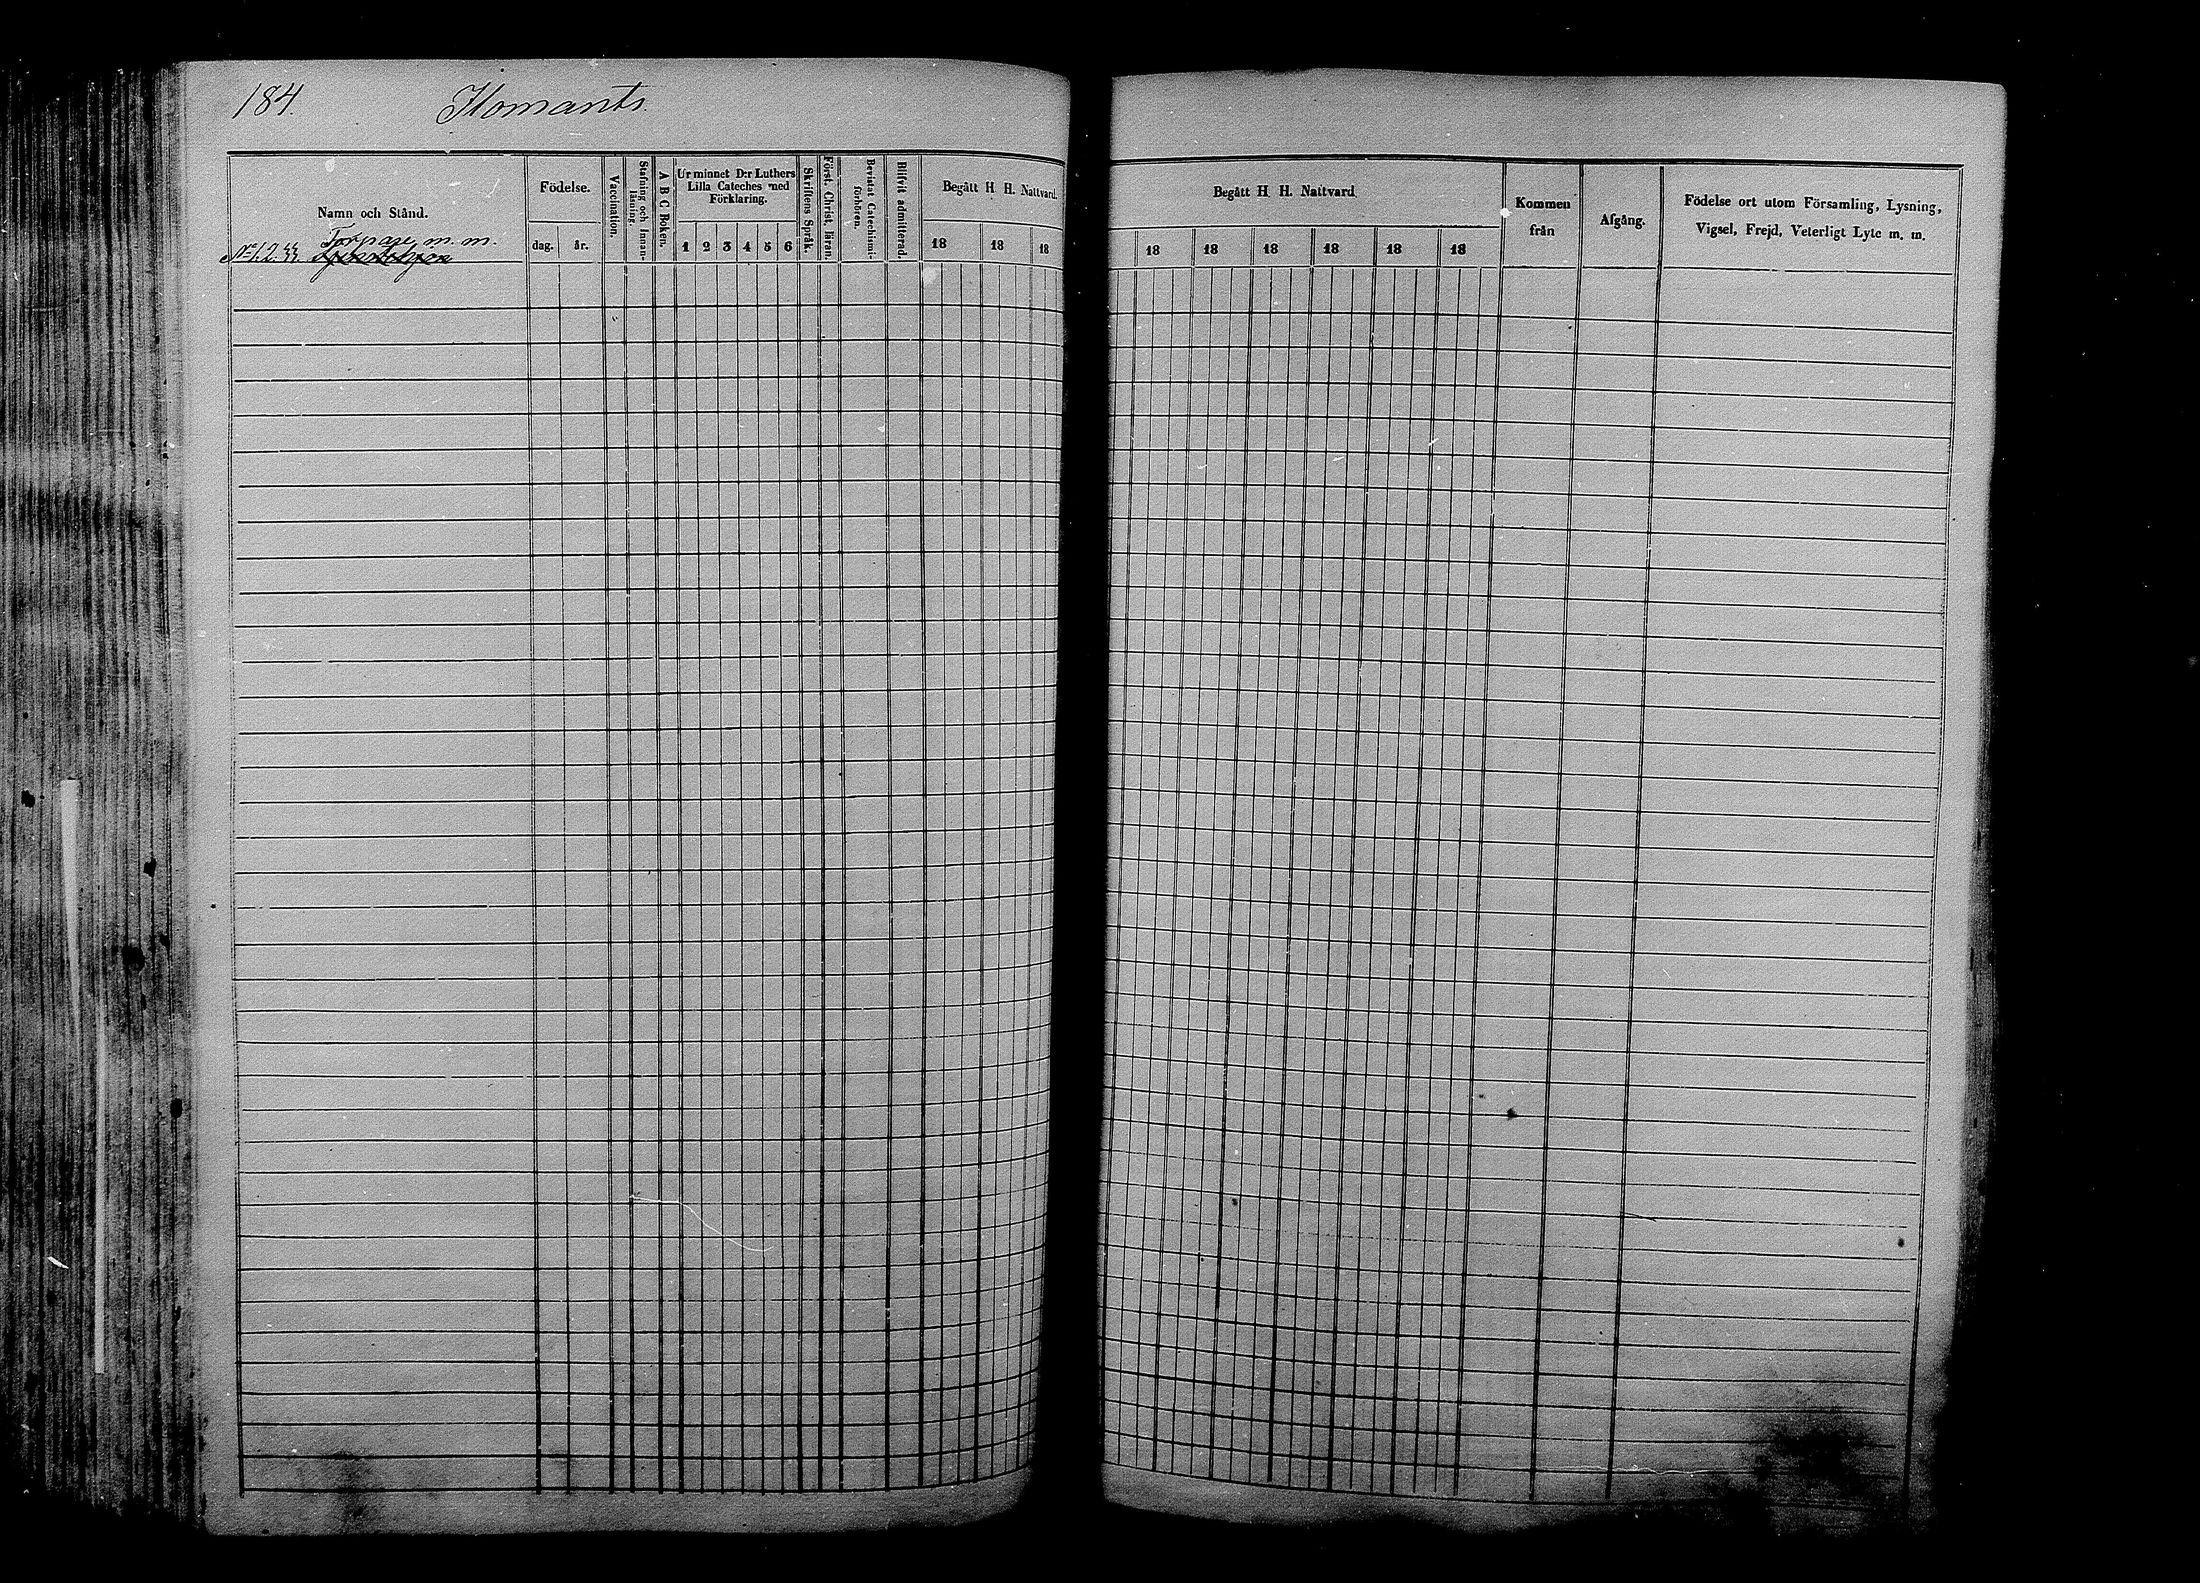 184. Flomants.
Namn och Stånd.
Torpare m. m.
Födelse.
dag. år.
Vaccination.
Stafning och Innan-
läsning.
A B C Boken.
Ur minnet D:r Luthers
Lilla Cateches med
Förklaring.
1 2 3 4 5 6
Skriftens Språk.
Först. Christ. läran.
Bevistat Catechismi-
förhören.
Blifvit admitterad.
Begått H. H. Nattvard.
18 18 18
Begått H. H. Nattvard.
18 18 18 18 18 18
Kommen
från
Afgång.
Födelse ort utom Församling, Lysning,
Vigsel, Frejd, Veterligt Lyte m. m.